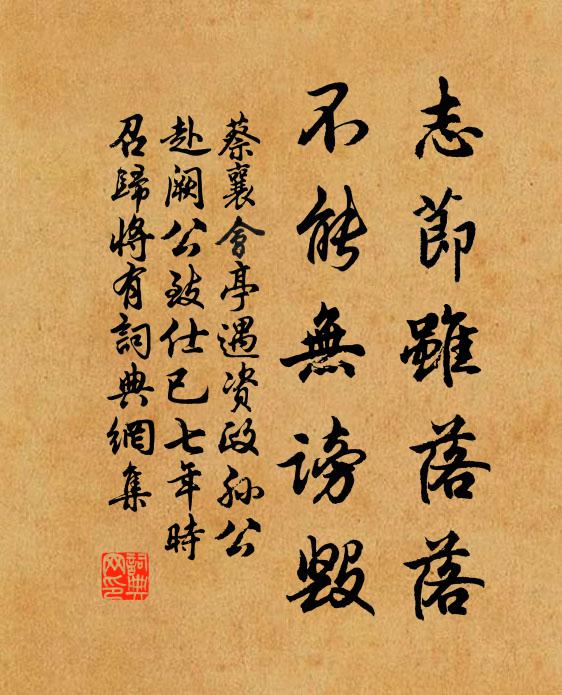 志節雖落落
不能無謗毀
蔡襄會亭遇資政孫公
赴阙公致仕已七年時
召歸將有詞典網集
詞典
网印